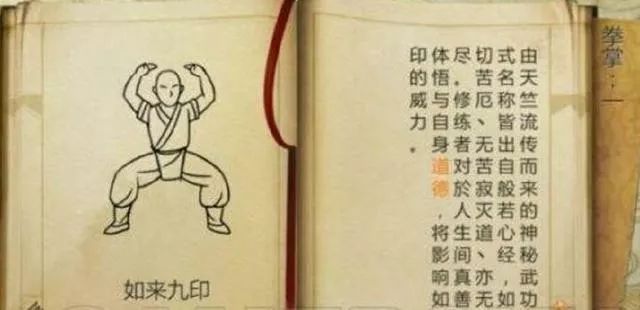 拳掌：一
由天竺流传而来的神秘武功
式名称皆出自般若心经，如
切苦厄、无苦寂灭道、亦无
尽。修练者对於人生间真善
体悟与自身道德，将影响如
印的威力。
如来九印